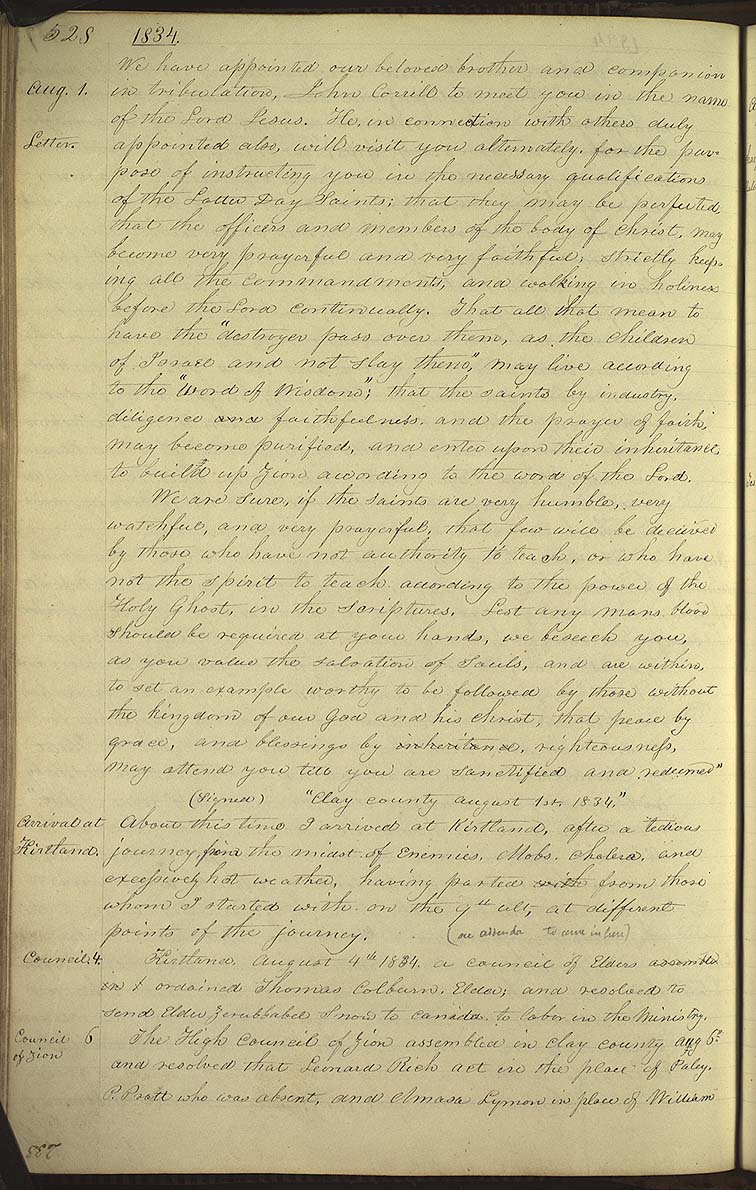 528 1834.
We have appointed our beloved brother and companion
Aug. 1. in tribulation, John Corrill to meet you in the name
of the Lord Jesus. He, in connection with others duly
Letter. appointed also, will visit you alternately. for the pur=
pose of instructing you in the necessary qualifications
of the Latter Day Saints; that they may be perfected,
that the officers and members of the body of Christ, may
become very prayerful and very faithful; strictly keep=
ing all the commandments, and walking in holiness
before the Lord continually. That all that mean to
have the "destroyer pass over them, as the children
of Israel and not slay them," may live according
to the "Word of Wisdom"; that the saints by industry,
diligence and faithfulness. and the prayer of faith,
may become purified, and enter upon their inheritance
to built up Zion according to the word of the Lord.
We are sure, if the saints are very humble, very
watchful, and very prayerful, that few will be deceived
by those who have not authority to teach, or who have
not the spirit to teach according to the power of the
Holy Ghost, in the scriptures. Lest any mans blood
should be required at your hands, we beseech you,
as you value the salvation of souls, and are within,
to set an example worthy to be followed by those without
the kingdom of our God and his Christ, that peace by
grace, and blessings by inheritance, righteousness,
may attend you till you are sanctified and redeemed"
(Signed) "Clay county august 1st 1834."
Arrival at Kirtland. About this time I arrived at Kirtland, after a tedious
journey from the midst of Enemies, Mobs. cholera, and
excessively hot weather, having parted with from those
whom I started with on the 9th ult, at different
points of the journey. (see addenda to come in here)
Council; 4. Kirtland. August 4th 1834. a council of Elders assembled
in & ordained Thomas Colburn. Elder; and resolved to
send Elder Zerubbabel Snow to Canada. to labor in the Ministry.
Council of Zion 6 The High Council of Zion assembled in Clay county aug 6th
and resolved that Leonard Rich act in the place of Parley.
P. Pratt who was absent, and Amasa Lyman in place of William